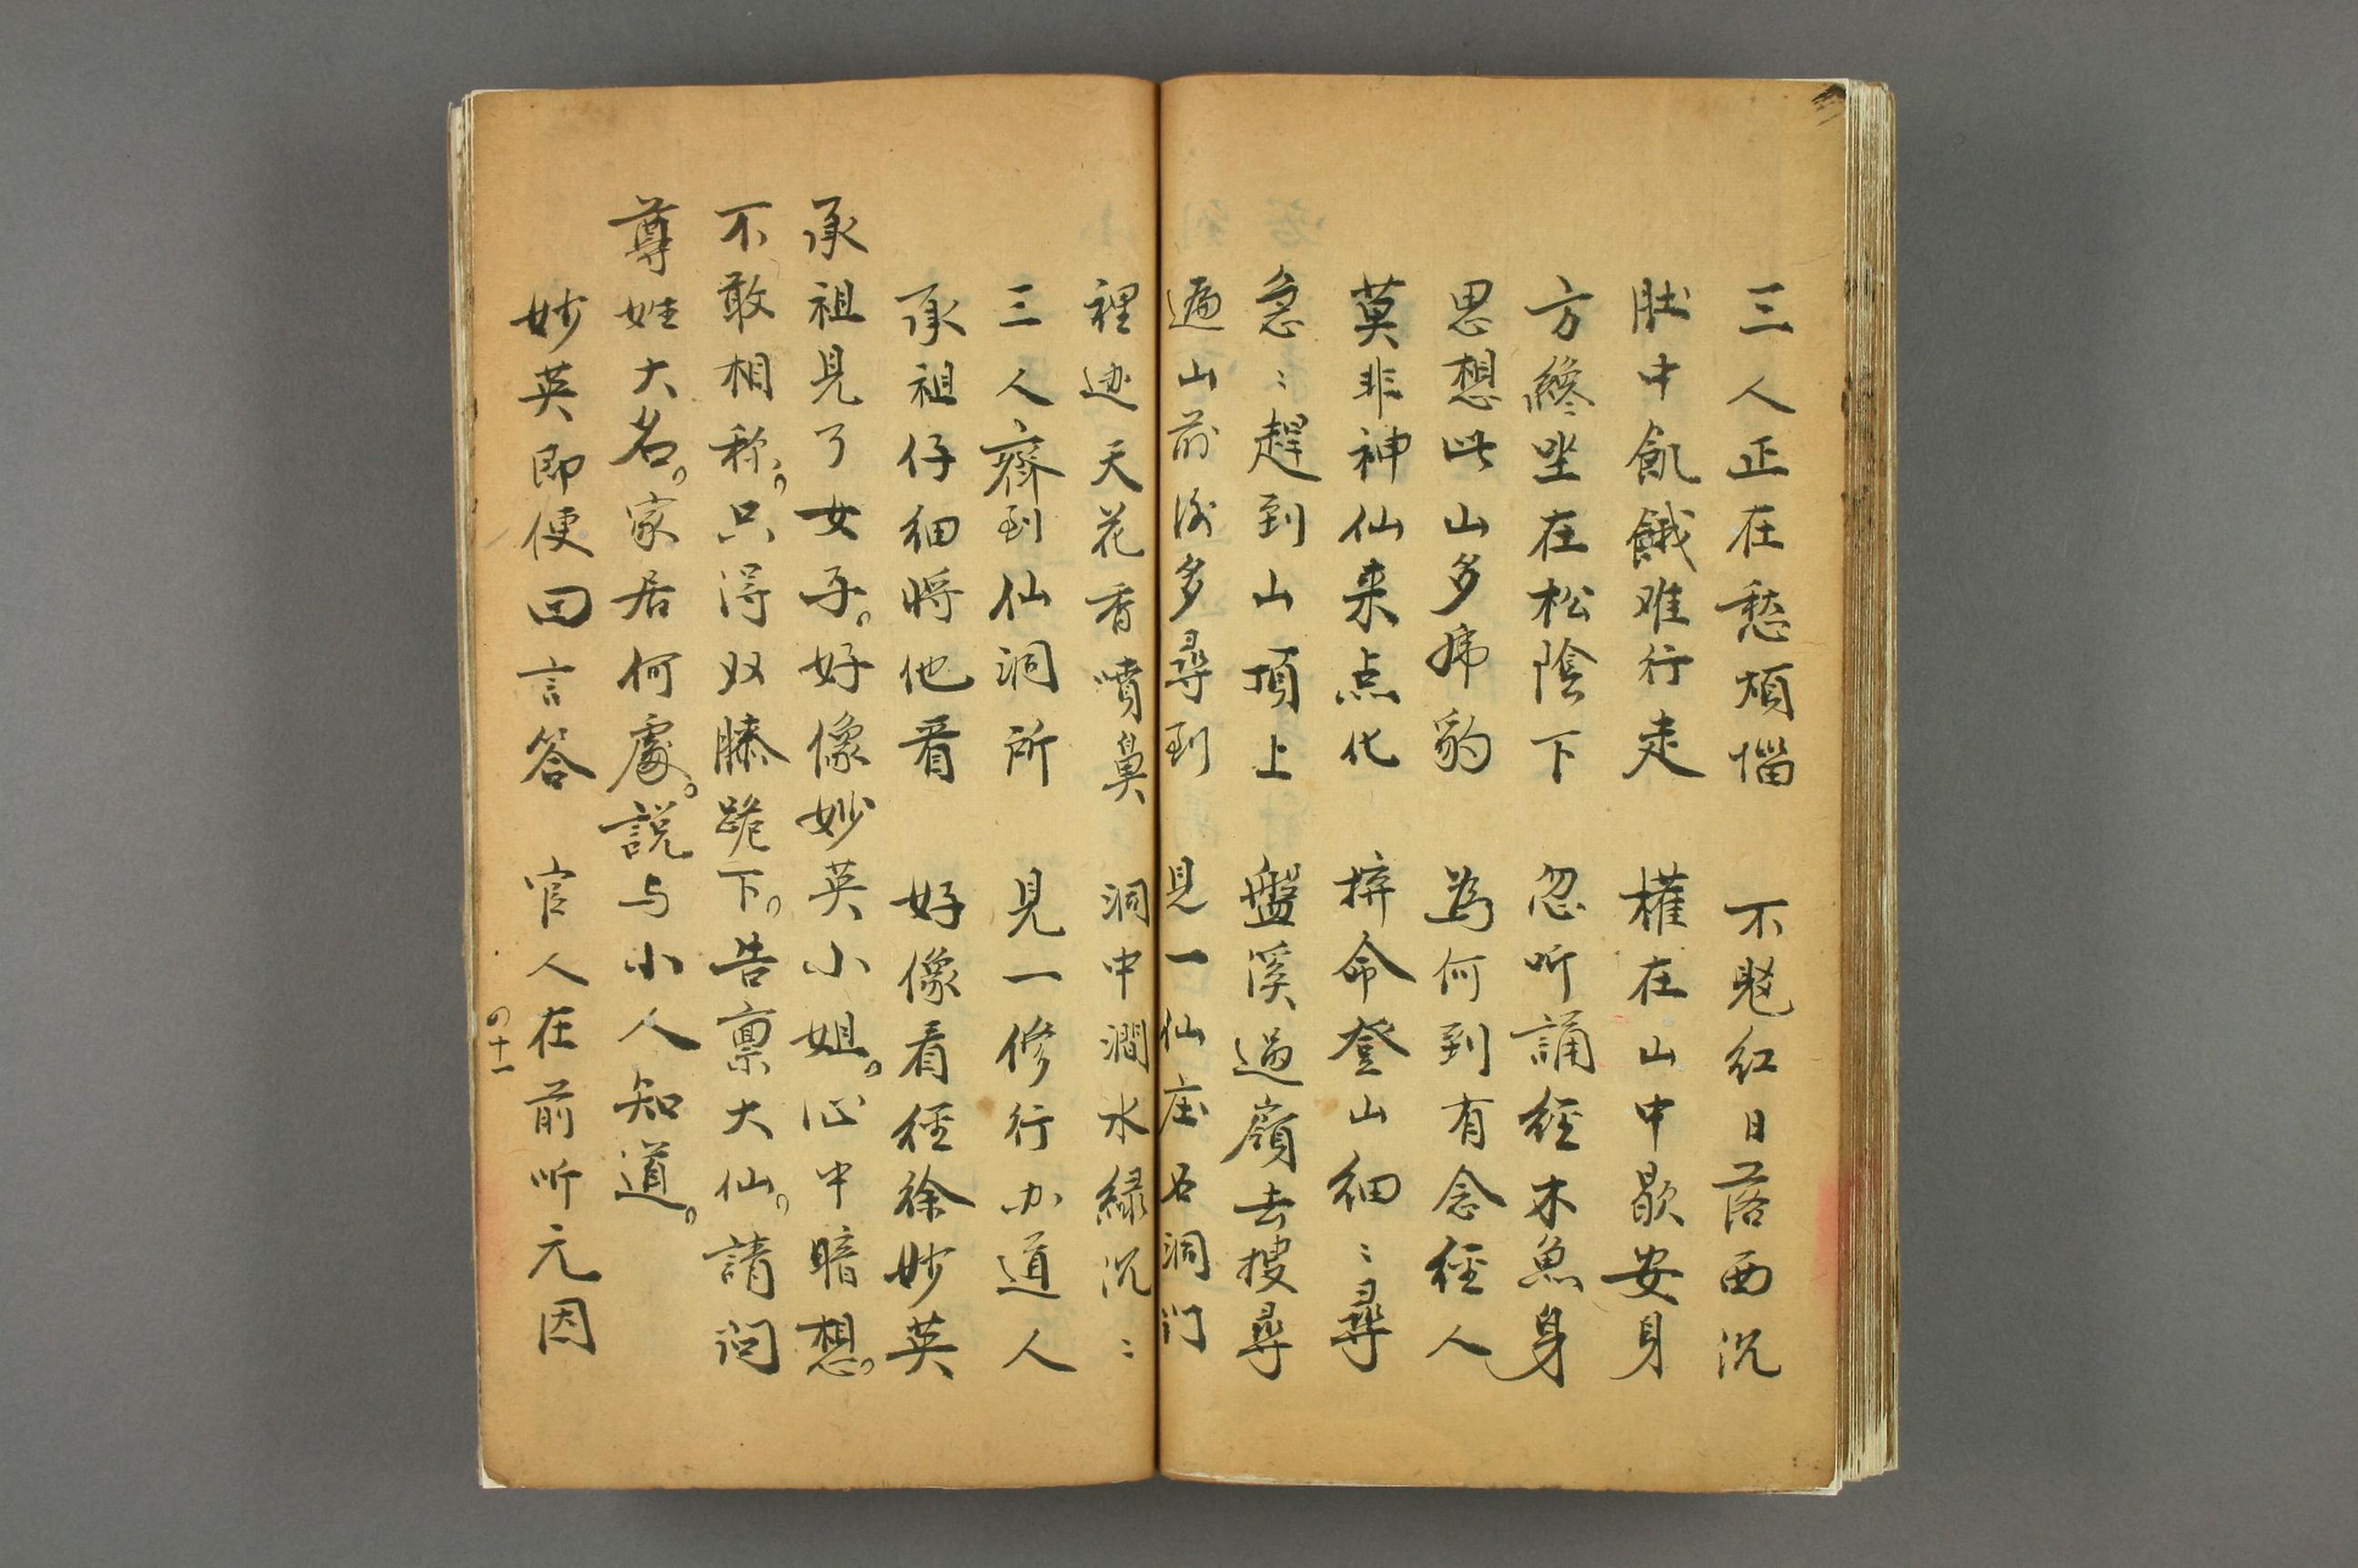 三人正在愁煩惱　不覺紅日落西沉
肚中飢餓难行走　權在山中歇安身
方纔坐在松陰下　忽听誦經木魚身
思想此山多席豹　為何到有念经人
莫非神仙来点化　拚命登山細〻尋
急〻趕到山頂上　盤溪過嶺去搜尋
遍山前後多尋到　見一仙庄石洞门
裡边天花香噴鼻　洞中澗水緑沉〻
三人齊到仙洞所　見一修行办道人
承祖仔細將他看　好像看经徐妙英
承祖見了女子。好像妙英小姐。心中暗想。
不敢相称。只得奴膝跪下。告禀大仙。請问
尊姓大名。家居何處。説与小人知道。
妙英即便回言答　官人在前听元因